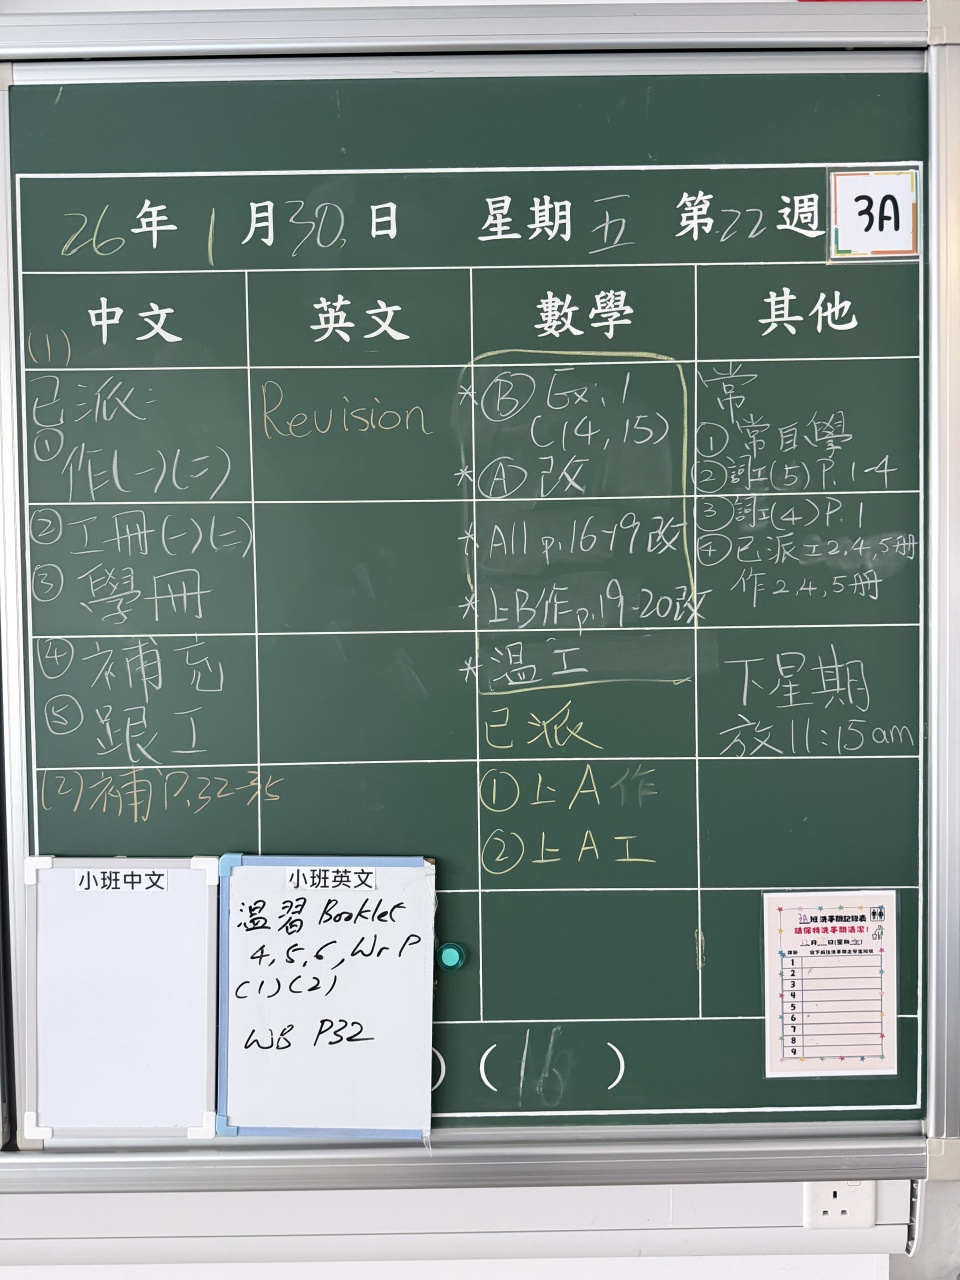 26年1月30日 星期五 第22週 3A
中文
英文
數學
其他
(1)
已派:
①
作(一)(二)
②工冊(一)(二)
③學冊
④補充
⑤跟工
(2)補P.32-35
Revision
*Ⓑ Ex.1
(14,15)
*Ⓐ 改
*A11 p.16-19改
*上B作p.19-20改
*溫工
已派
①上A作
②上A工
常
①常自學
②詞工(5)P.1-4
③詞工(4)P.1
④已派工2,4,5冊
作2,4,5冊
下星期
放11:15am
小班中文
小班英文
溫習Booklet
4,5,6,Wr P
(1)(2)
WB P32
) (16)
3A班洗手間記錄表
請保持洗手間清潔!
月 日(星期 )
1
2
3
4
5
6
7
8
9